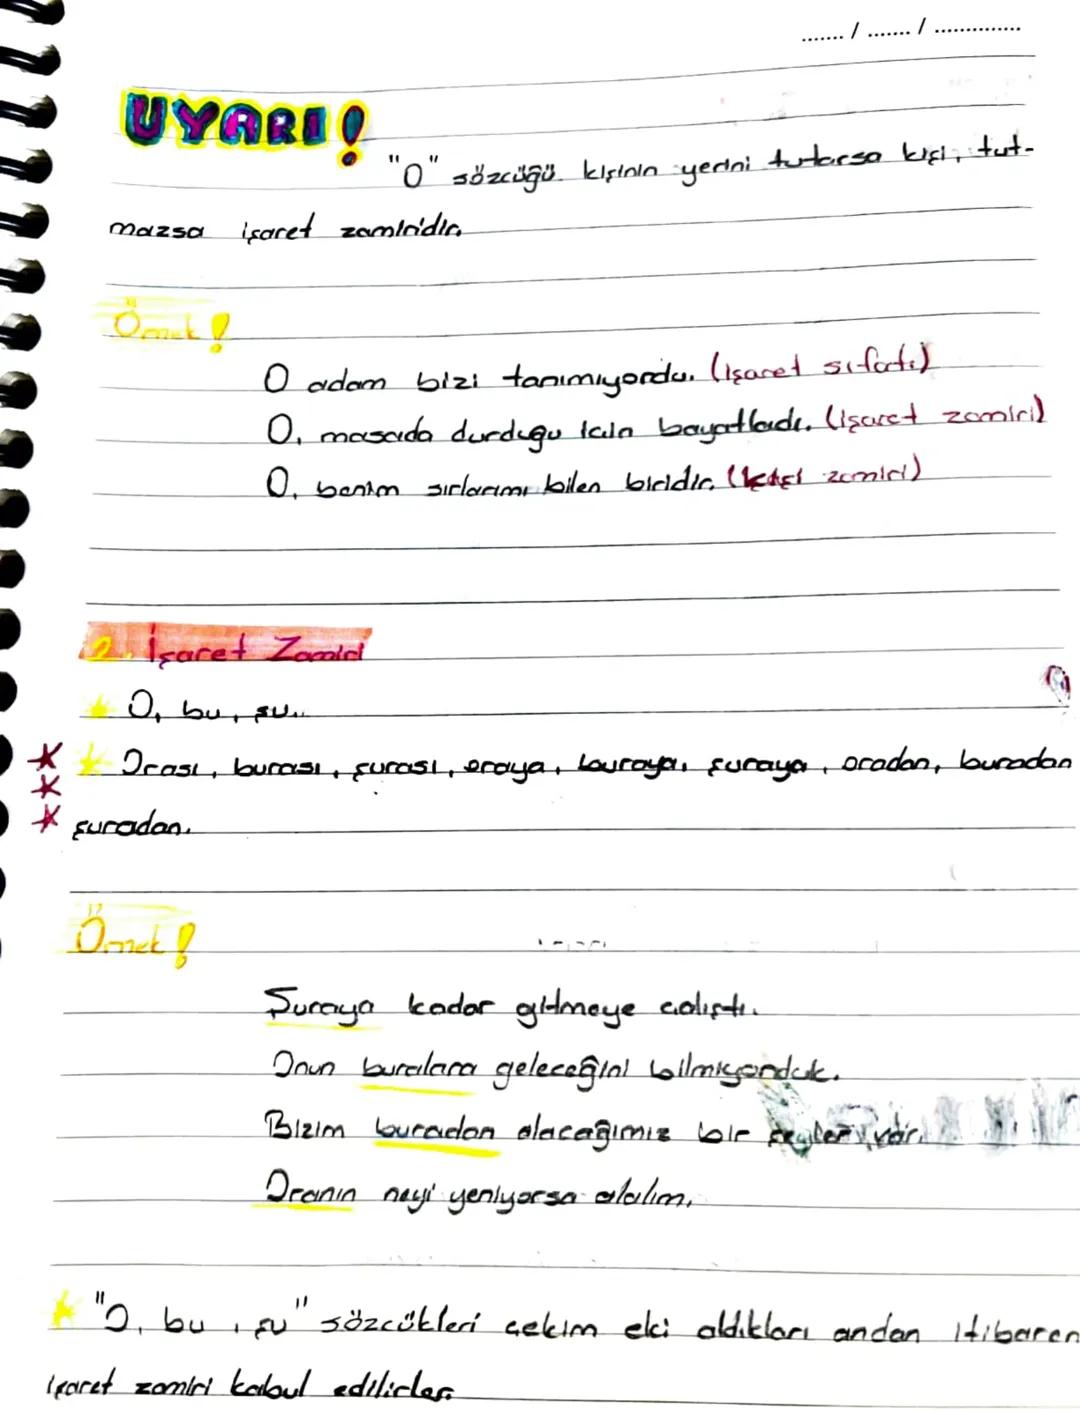 ....... / ....... / ..............
UYARI!
"O" sözcüğü kişinin yerini tutarsa kişi, tut-
mazsa işaret zamiridir.
Örnek!
O adam bizi tanımıyordu. (İşaret sıfatı)
O, masada durduğu için bayatladı. (İşaret zamiri)
O, benim sırlarımı bilen biridir. (Kişi zamiri)
2. İşaret Zamiri
O, bu, şu...
Orası, burası, şurası, oraya, buraya, şuraya, oradan, buradan
şuradan.
Örnek!
Şuraya kadar gitmeye çalıştı.
Onun buralara geleceğini bilmiyorduk.
Bizim buradan alacağımız bir şeyler var.
Oranın neyi yeniyorsa alalım.
"O, bu, şu" sözcükleri çekim eki aldıkları andan itibaren
işaret zamiri kabul edilirler.